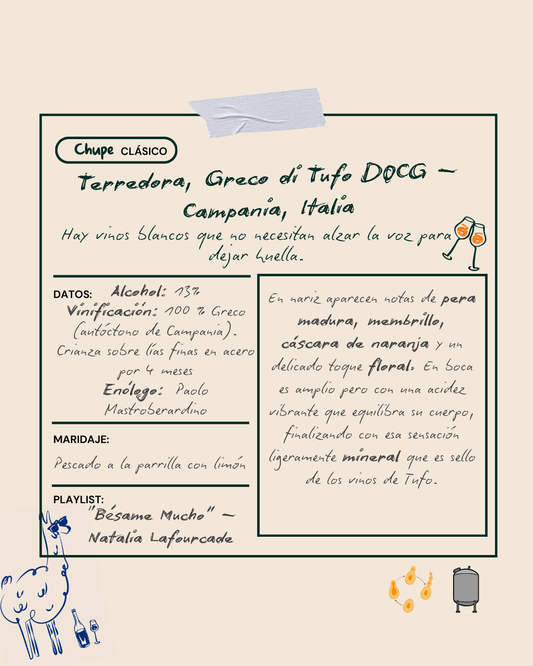 Chupe CLÁSICO
Terredora, Greco di Tufo DOCG –
Campania, Italia
Hay vinos blancos que no necesitan alzar la voz para
dejar huella.
DATOS: Alcohol: 13%
Vinificación: 100 % Greco
(autóctono de Campania).
Crianza sobre lías finas en acero
por 4 meses
Enólogo: Paolo
Mastroberardino
MARIDAJE:
Pescado a la parrilla con limón
PLAYLIST:
"Bésame Mucho" –
Natalia Lafourcade
En nariz aparecen notas de pera
madura, membrillo,
cáscara de naranja y un
delicado toque floral. En boca
es amplio pero con una acidez
vibrante que equilibra su cuerpo,
finalizando con esa sensación
ligeramente mineral que es sello
de los vinos de Tufo.